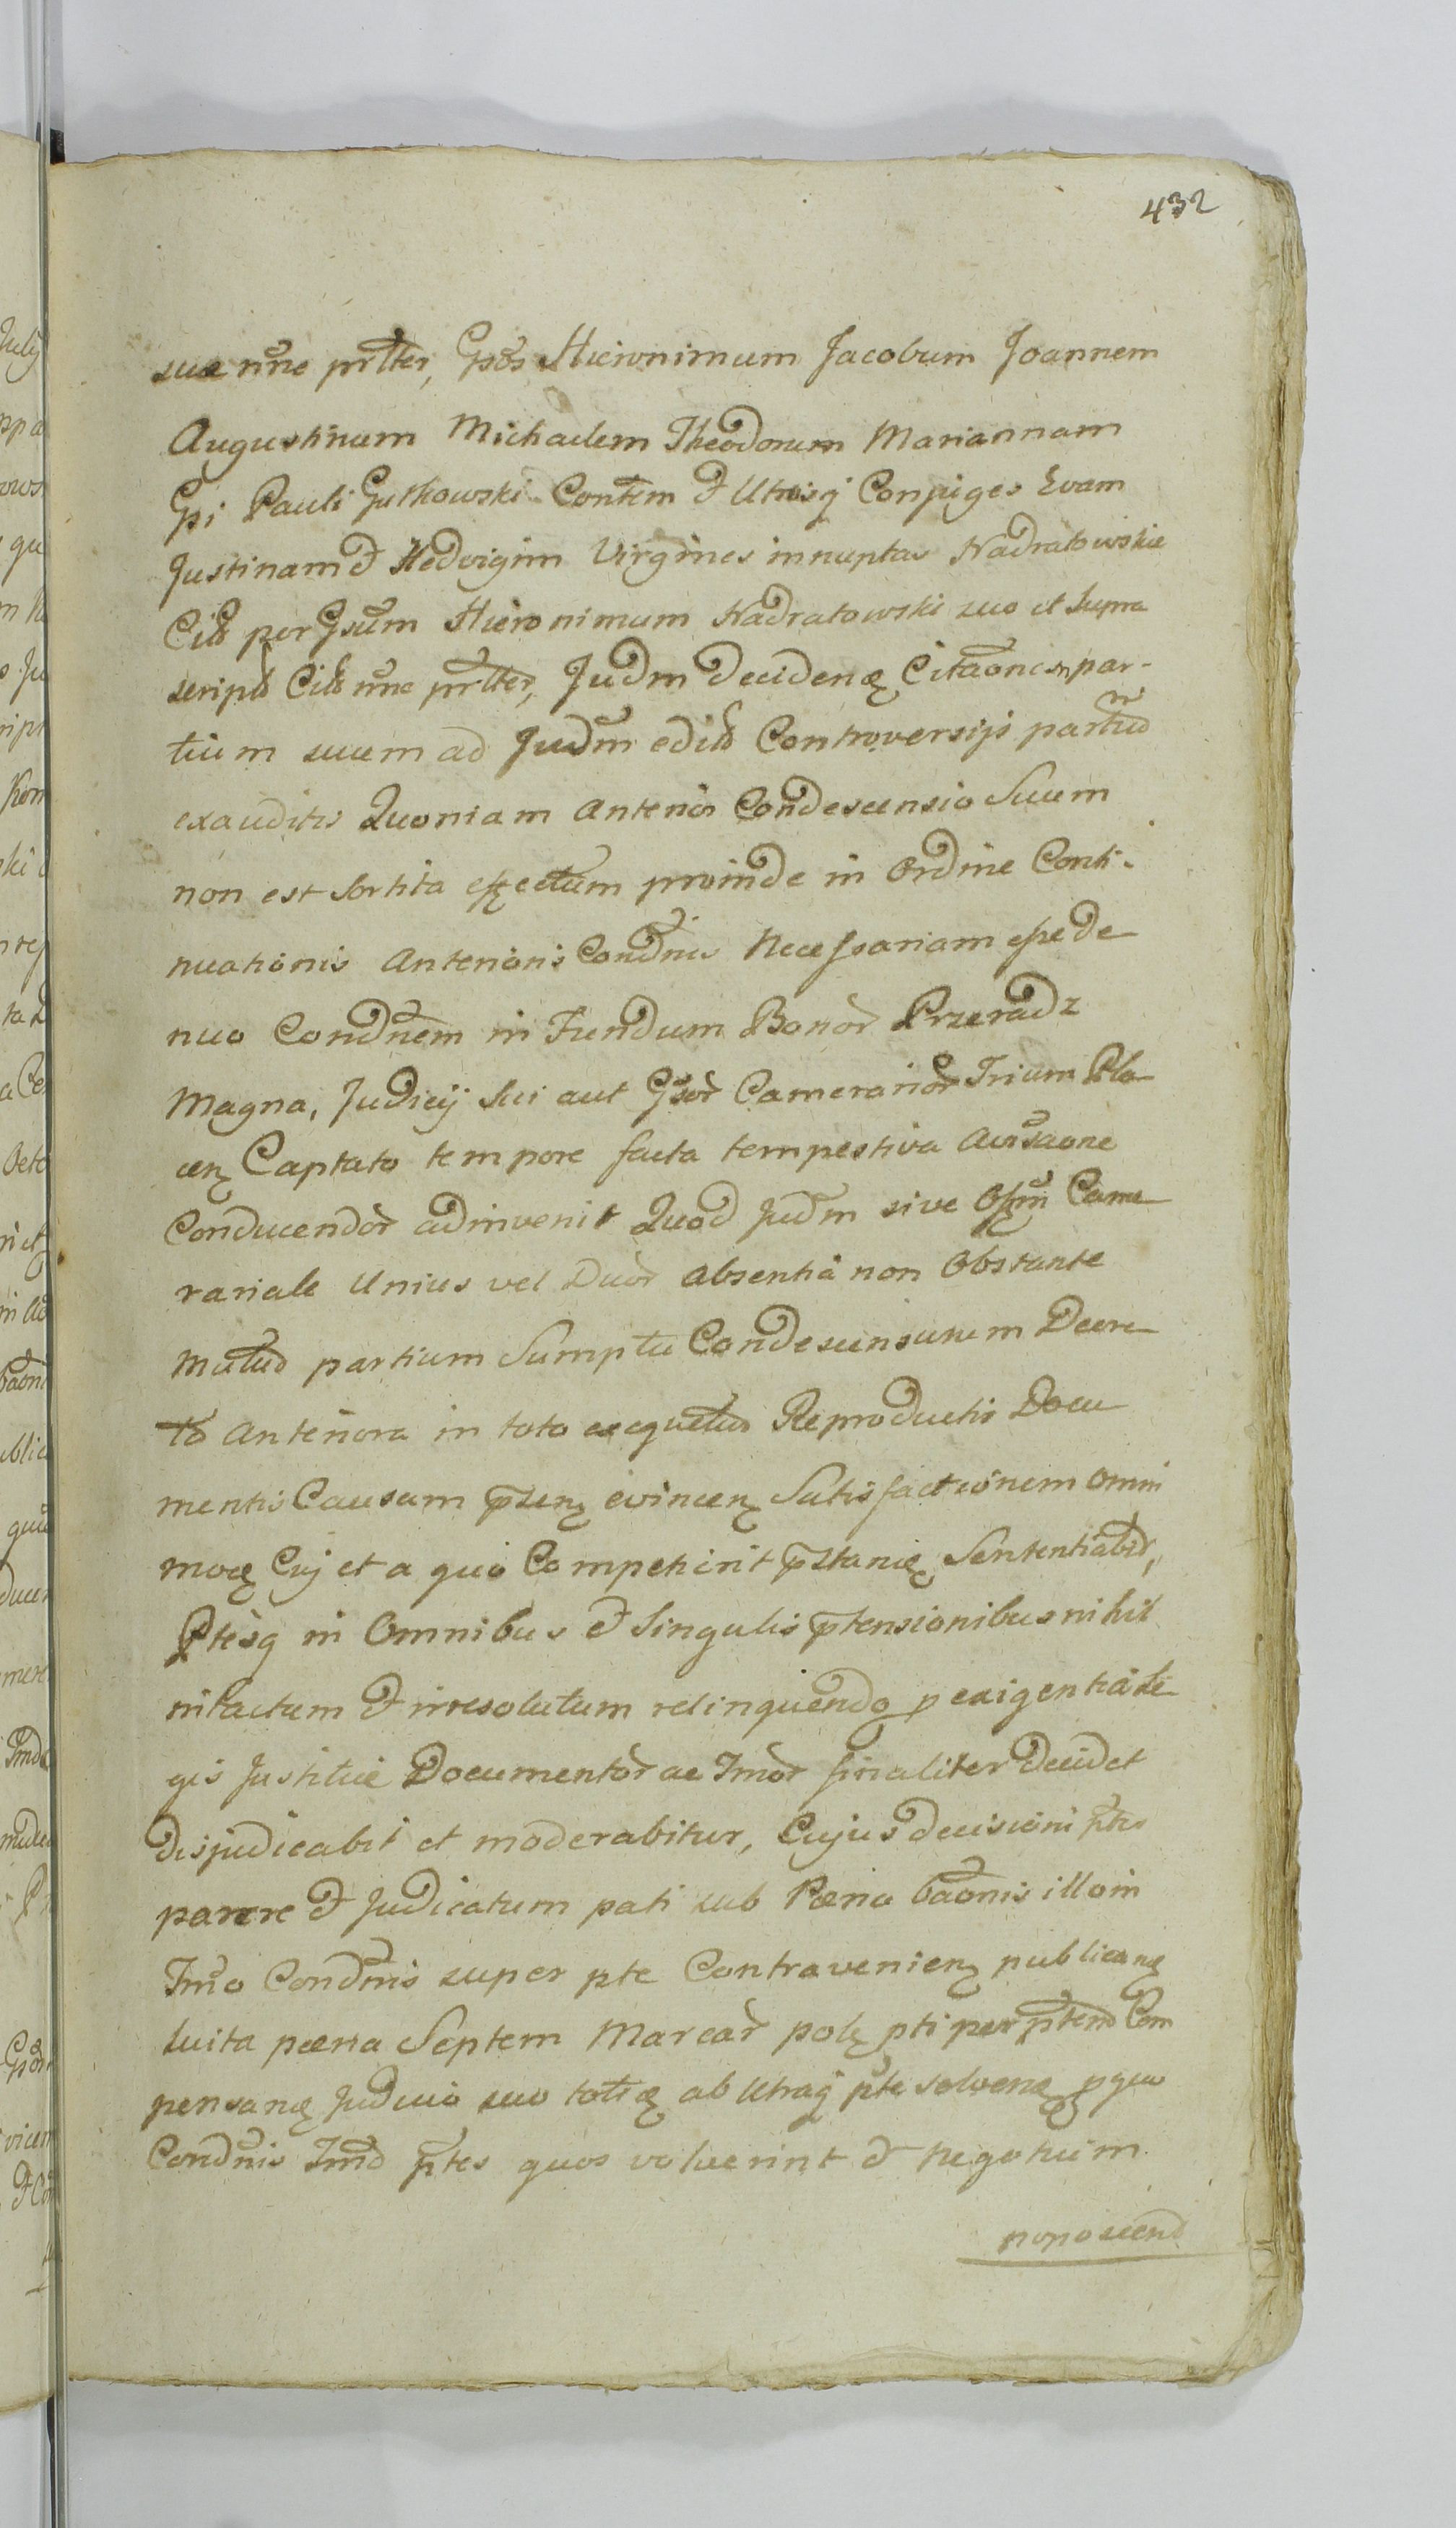 432
suo nne prlter, Gsos Hieronimum Jacobum Joannem
Augustinum Michaelem Theodorum Mariannam
Gsi Pauli Gutkowski Contem et Utrisq Conjuges Evam
Justinam et Hedvigim Virgines innuptas Nadratowskie
Citt per Gsum Hieronimum Nadratowski suo et supra
script Citt nne prlter, Judm Decidenę Citaonem par-
tium suum ad Judm edit Controversijs partiud
exauditis Quoniam anterior Condescensio Suum
non est Sortita effectum proinde in Ordine Conti-
nuationis Anterioris Condnis Necessariam esse de
nuo Condnem in Fundum Bonor Przeradz
Magna, Judicij sui aut Gsor Camerarior Trium Pla
cen Captato tempore facta tempestiva Avisaone
Conducendor adinvenit Quod Judm sive Offm Came
rariale Unius vel Duor absentiâ non Obstante
Mutuo partium Sumptu Condescensurum Decre
ta Anteriora in toto exequetur Reproductis Docu
mentis Causam pzen evincen Satisfactionem omni
modę Cuj et a quo Competierit pztanię Sententiabit,
Ptesq in Omnibus et Singulis ptensionibus nihil
intactum et irresolutum relinquendo p exigentiâ Le
gis Justitiæ Documentor ac Jmor finaliter Decidet
Disjudicabit et moderabitur, Cujus decisioni ptes
parere et Judicatum pati sub Pæna baonis illo in
Jmo Condnis super pte Contravenien publicanę
luita pæna Septem Marcar pol pti per ptem Com
pensanę Judicio suo totię ab Utraq pte solvenę p quo
Condnis Jmo ptes quos voluerint et negotium
noposcend